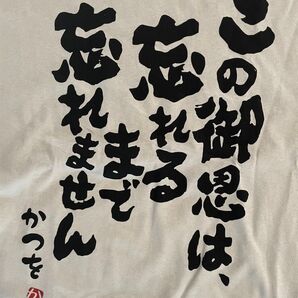 この御恩は、
忘れる
まで
忘れません
かつを
か